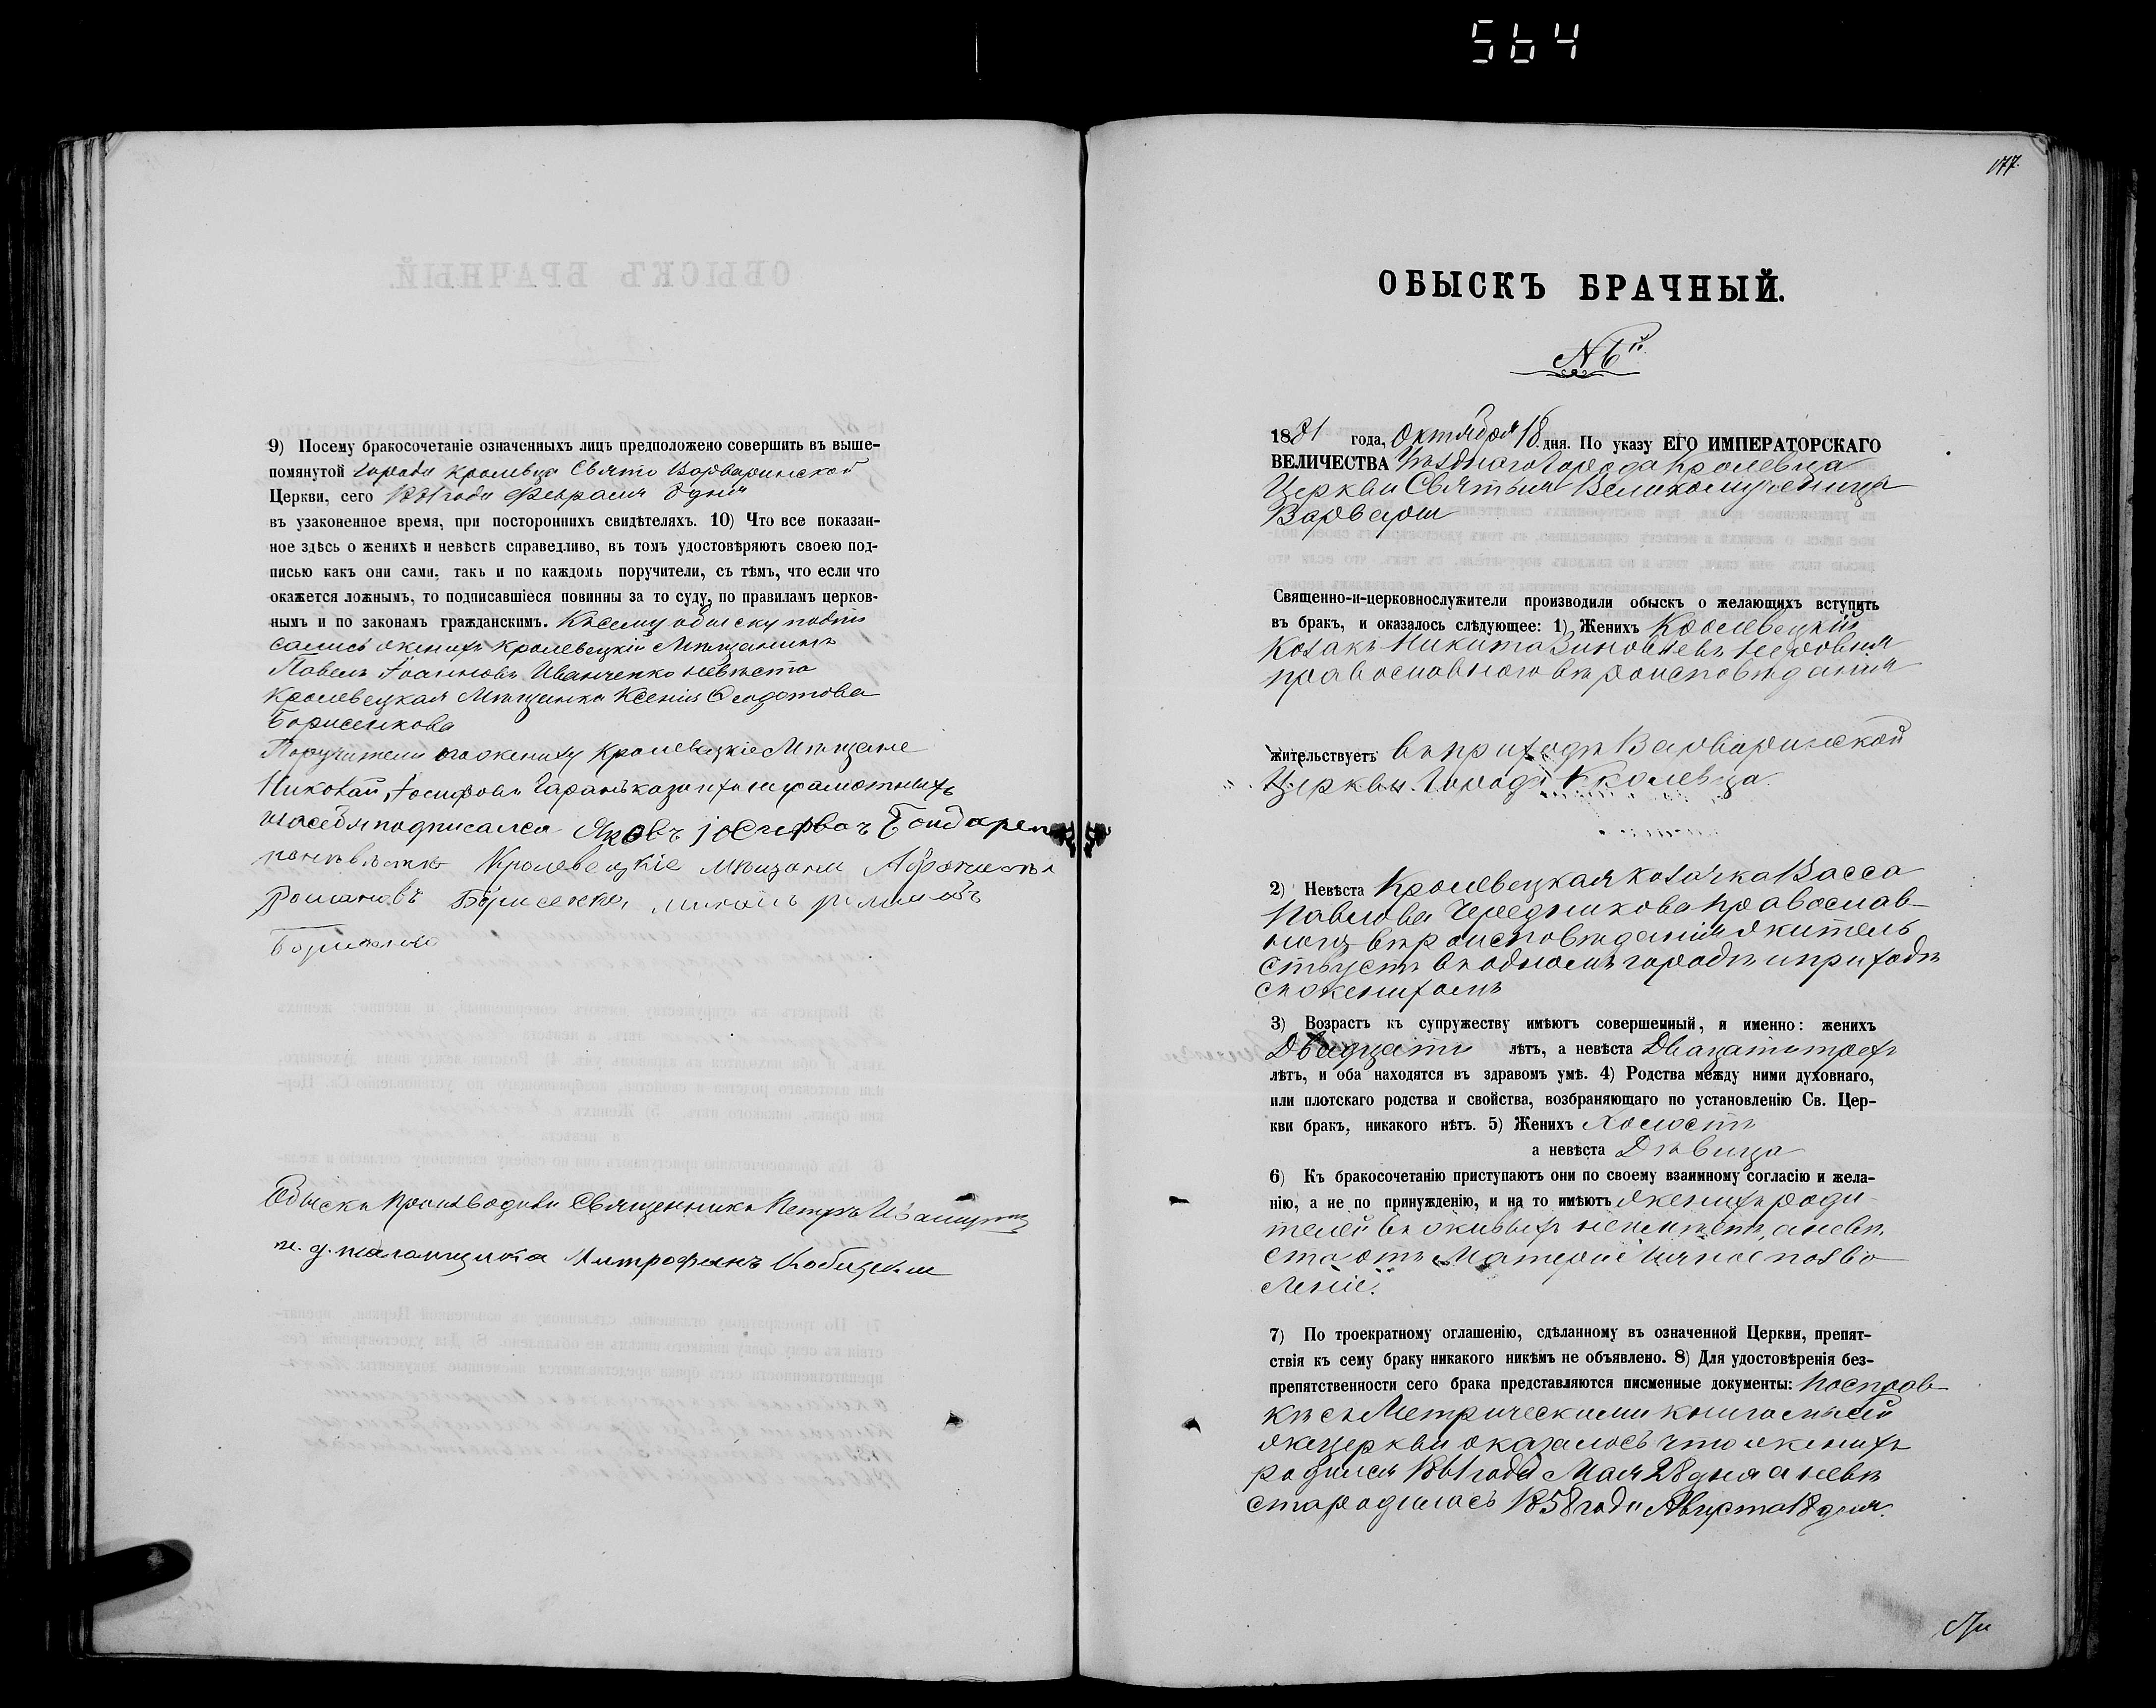 564
9) Посему бракосочетаніе означенныхъ лицъ предположено совершить въ выше-
помянутой города Кролевца Свято Варваринской
Церкви, сего 1881 года Февраля 8 дня
въ узаконенное время, при постороннихъ свидѣтеляхъ. 10) Что все показан-
ное здѣсь о женихѣ и невѣстѣ справедливо, въ томъ удостовѣряютъ своею под-
писью какъ они сами, такъ и по каждомъ поручители, съ тѣмъ, что если что
окажется ложнымъ, то подписавшіеся повинны за то суду, по правиламъ церков-
нымъ и по законамъ гражданскимъ. Къ сему обыску подпи
сались женихъ Кролевецкій Мѣщанинъ
Павелъ Іоанновъ Иванченко невѣста
Кролевецкая Мѣщанка Ксенія Феодотова
Борисенкова
Поручители по женихѣ Кролевецкіе Мѣщане
Николай Іосифовъ неграмотныхъ
и за себя подписался Яковъ Іосифовъ Бондарен
по невѣстѣ Кролевецкіе мѣщани
Романовъ Борисенко
Обыскъ Производили Священникъ Петръ
и. д. псаломщика Митрофанъ
177.
ОБЫСКЪ БРАЧНЫЙ.
N 6й
1881 года, Октября 18 дня. По указу ЕГО ИМПЕРАТОРСКАГО
ВЕЛИЧЕСТВА Уѣзднаго Города Кролевца
Церкви Святыя Великомученицы
Варвары
Священно-и-церковнослужители производили обыскъ о желающихъ вступить
въ бракъ, и оказалось слѣдующее: 1) Женихъ Кролевецкій
Козакъ Никита Зиновіевъ
православного вѣроисповѣданія
жительствуетъ въ приходѣ Варваринской
Церкви Города Кролевца.
2) Невѣста Кролевецкая козачка Васса
Павлова Чередникова православ-
ного вѣроисповѣданія житель
ствуетъ въ одномъ городѣ и приходѣ
съ женихомъ
3) Возрастъ къ супружеству имѣютъ совершенный, и именно: женихъ
Двадцати лѣтъ, а невѣста Двацати трехъ
лѣтъ, и оба находятся въ здравомъ умѣ. 4) Родства между ними духовнаго,
или плотскаго родства и свойства, возбраняющаго по установленію Св. Цер-
кви бракъ, никакого нѣтъ. 5) Женихъ Холостъ
а невѣста Дѣвица
6) Къ бракосочетанію приступаютъ они по своему взаимному согласію и жела-
нію, а не по принужденію, и на то имѣютъ женихъ роди-
телей въ живыхъ неимѣетъ, а невѣ
ста отъ Матери личное позво
леніе.
7) По троекратному оглашенію, сдѣланному въ означенной Церкви, препят-
ствія къ сему браку никакого никѣмъ не объявлено. 8) Для удостовѣренія без-
препятственности сего брака представляются писменные документы: По справ-
кѣ съ Метрическими книгами сей
же церкви оказалось что женихъ
родился 1861 года Мая 28 дня а невѣ
ста родилась 1858 года Августа 18 дня.